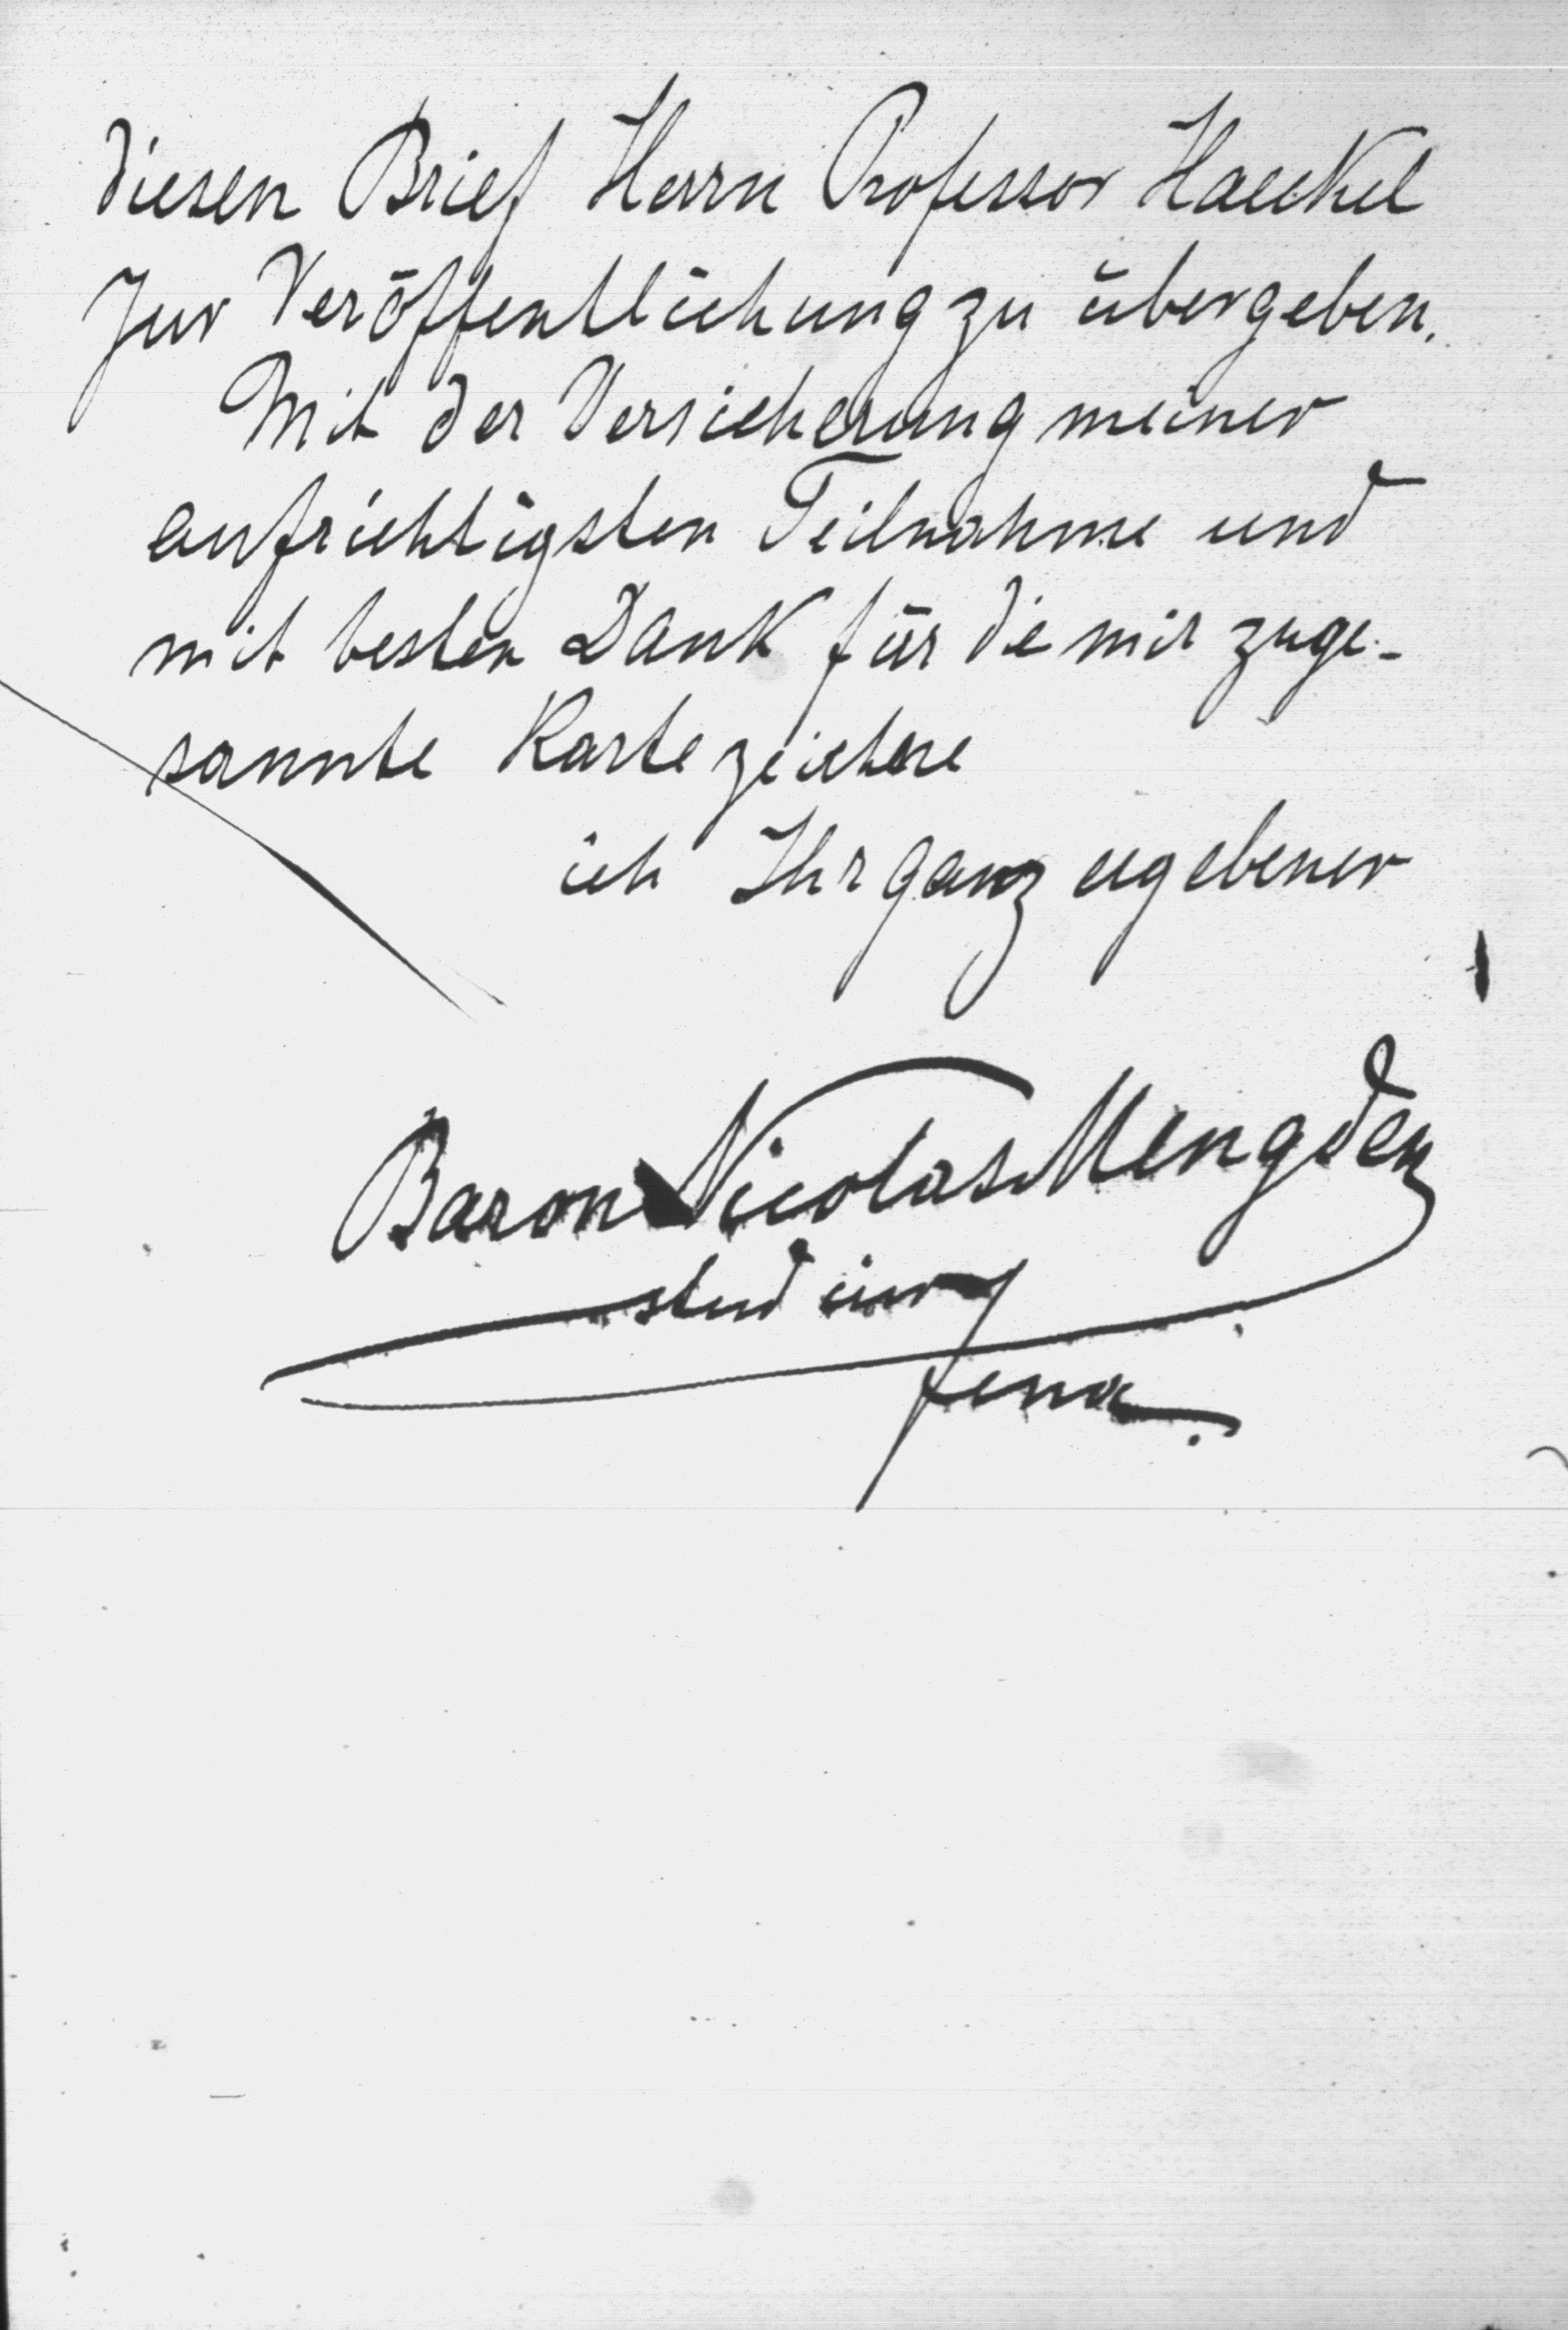 diesen Brief Herrn Professor Haeckel
zur Veröffentlichung zu übergeben.
Mit der Versicherung meiner
aufrichtigsten Teilnahme und
mit besten Dank für die mir zuge-
sannte Karte zeichne
ich Ihr ganz ergebener
Baron Nicolas Mengden
stud iur
Jena.